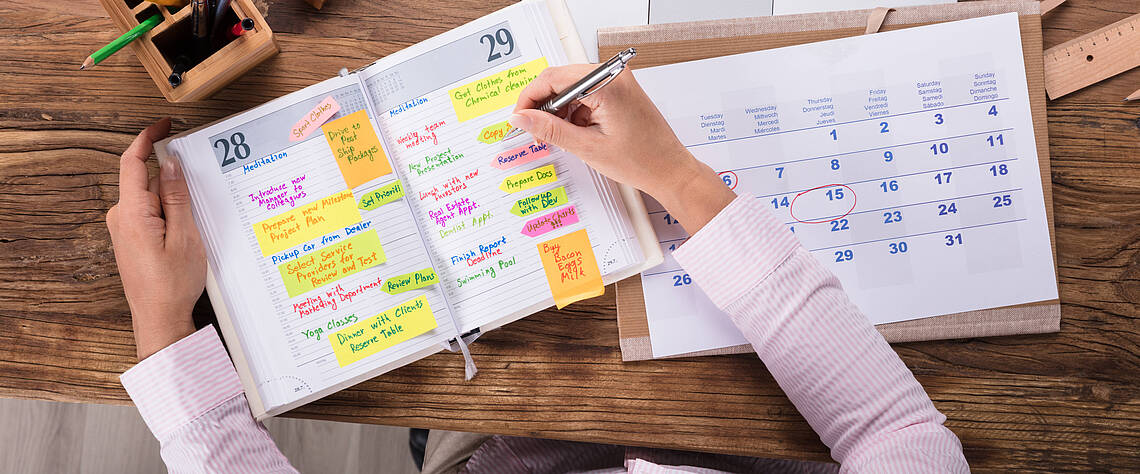 28
Meditation
Sport Clothes
Drive to
Post
Ship
Packages
Introduce new
Manager to
colleagues
Set Prioriti
Prepare new Milestone
Project Plan
Pickup Car from Dealer
Select Service
Providers for
Review and Test
Review Plans
Meeting with
Marketing Department
Yoga Classes
Dinner with Clients
Reserve Table
29
Meditation
Get Clothes from
Chemical cleaning
Weekly team
meeting
Copy
New Project
Presentation
Reserve Table
Lunch with new
Investors
Prepare Docs
Real Estate
Agent Appt.
Follow up
with Dev
Dentist Appt.
Update Charts
Finish Report
Deadline
Swimming Pool
Buy
Bacon
Eggs
Milk
Tuesday Wednesday Thursday Friday Saturday Sunday
Dienstag Mittwoch Donnerstag Freitag Samstag Sonntag
Mardi Mercredi Jeudi Vendredi Samedi Dimanche
Martes Miércoles Jueves Viernes Sábado Domingo
1 2 3 4
6 7 8 9 10 11
14 15 16 17 18
22 23 24 25
26 29 30 31